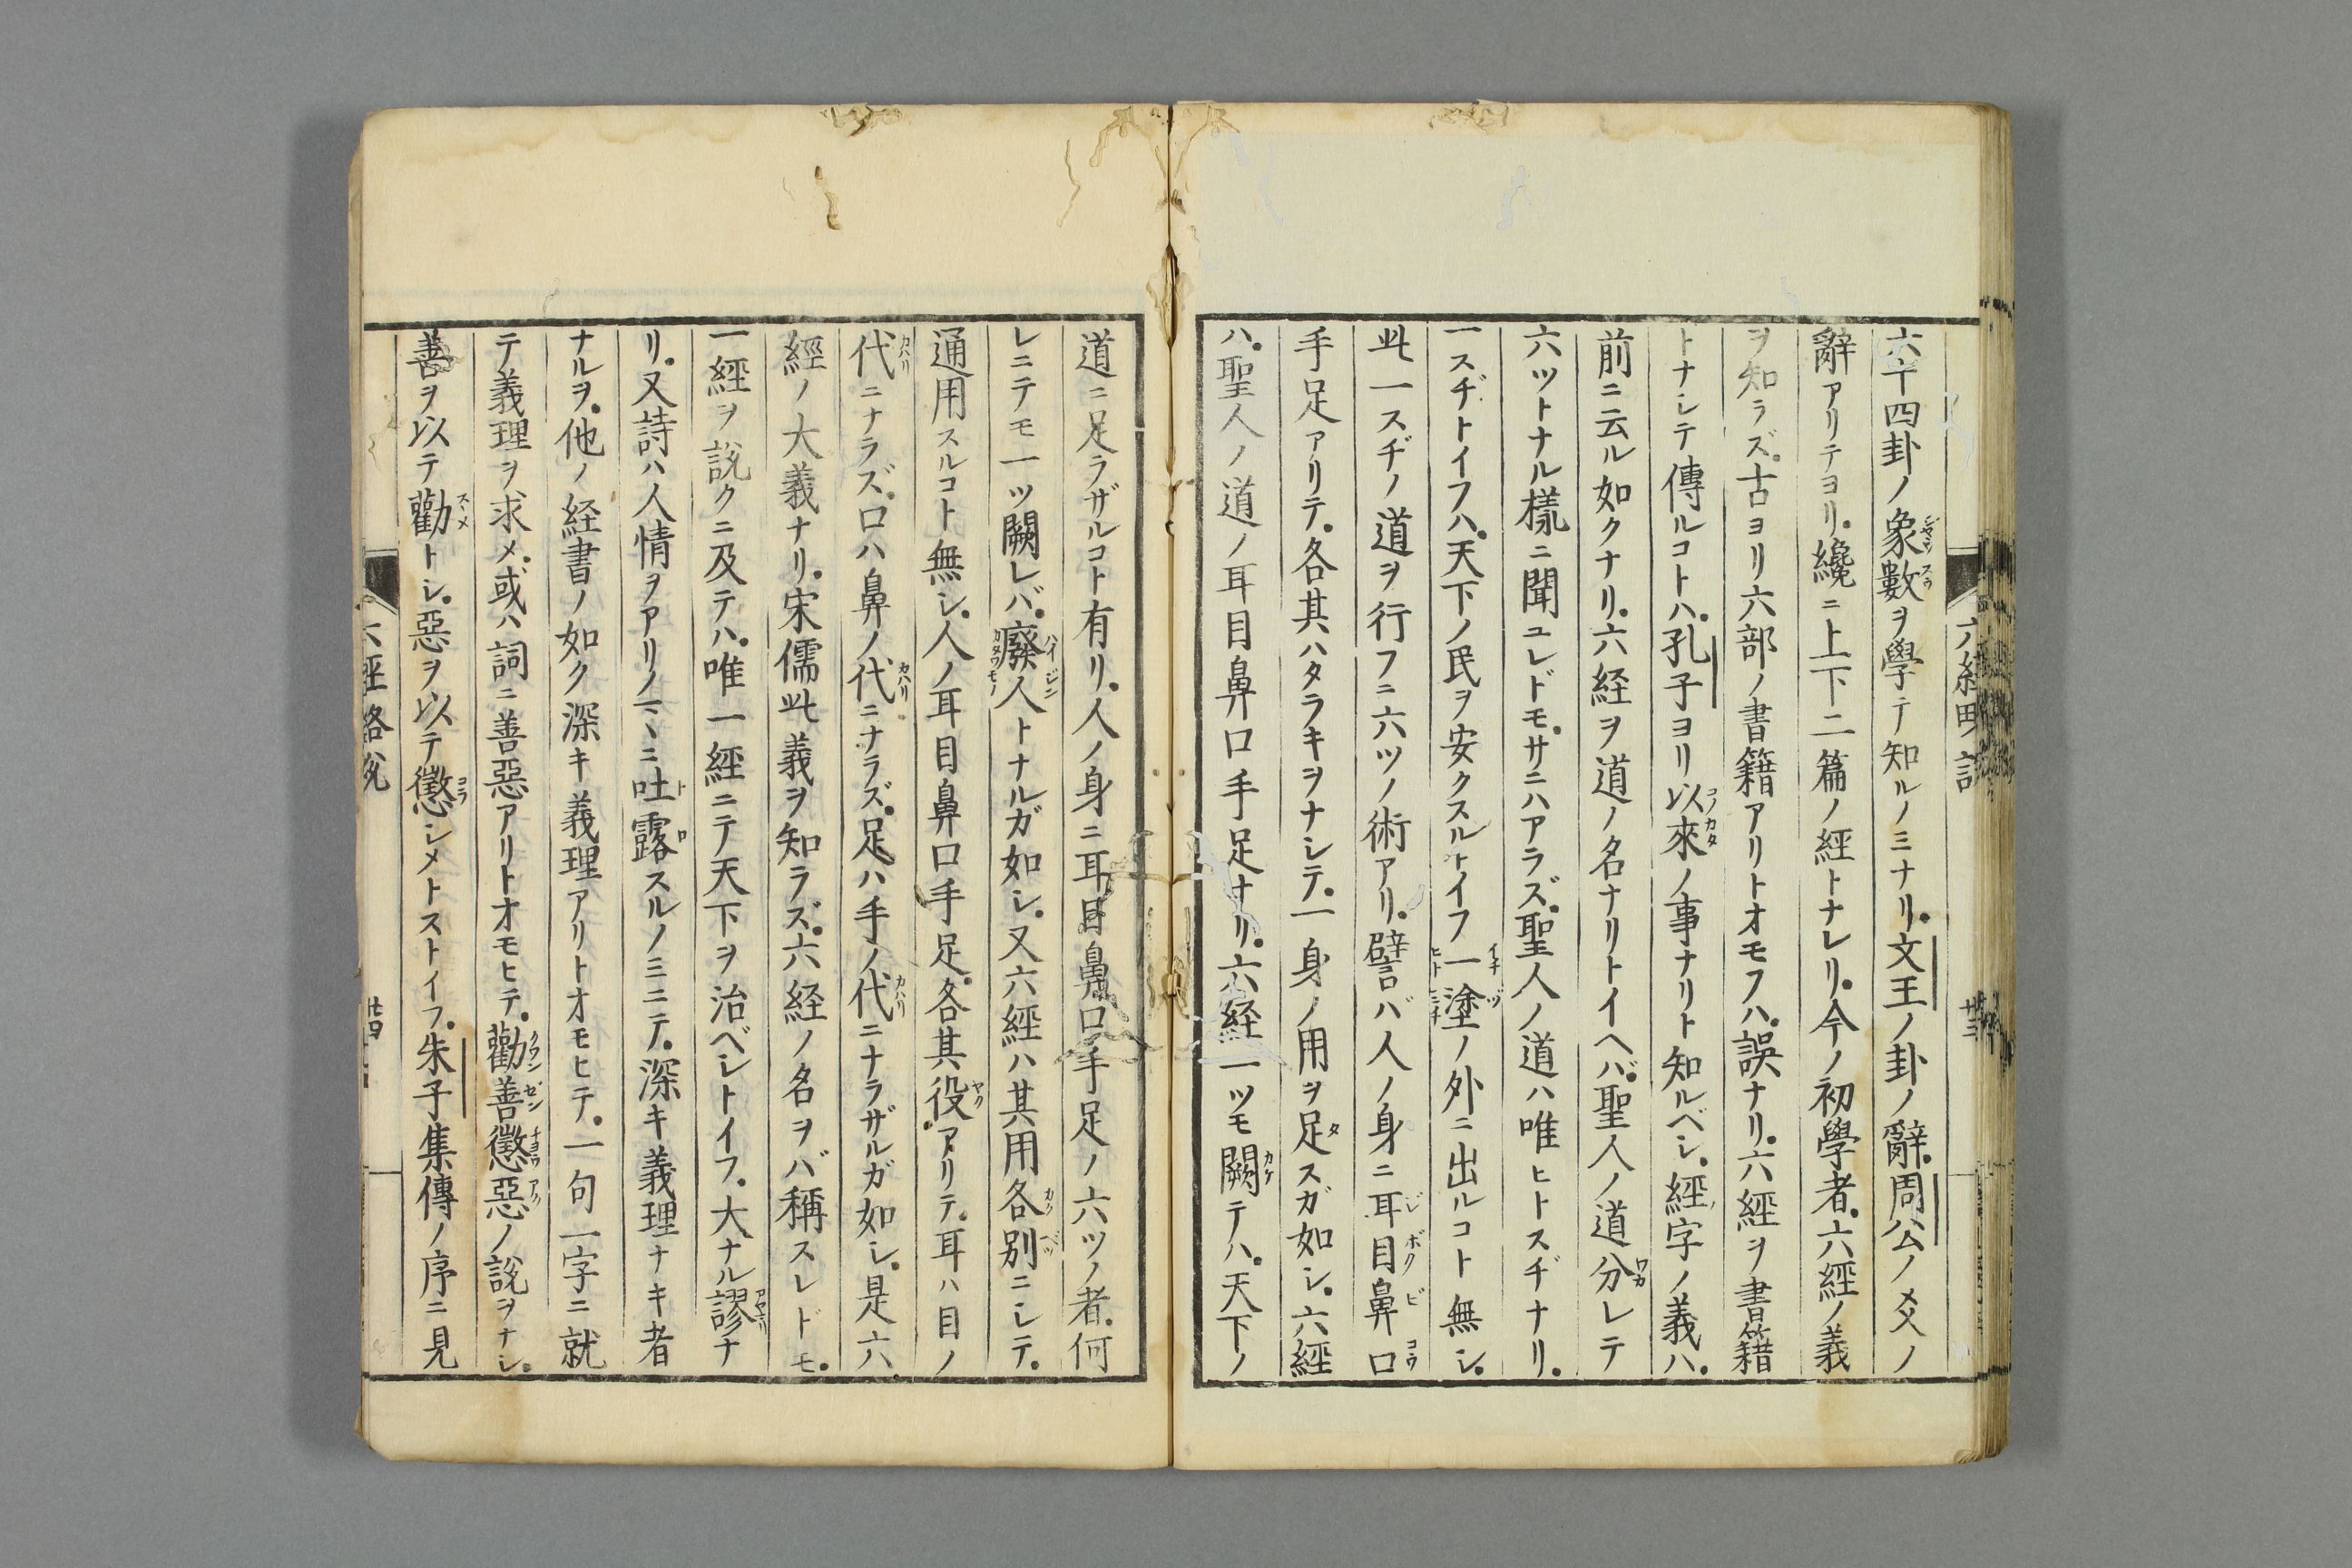 六十四卦ノ象數ヲ學テ知ルノミナリ。文王ノ卦ノ辭。周公ノ爻ノ
辭アリテヨリ。纔ニ上下二篇ノ經トナレリ。今ノ初學者。六經ノ義
ヲ知ラズ。古ヨリ六部ノ書籍アリトオモフハ。誤ナリ。六經ヲ書籍
トナシテ傳ルコトハ。孔子ヨリ以來ノ事ナリト知ルベシ。經字ノ義ハ。
前ニ云ル如クナリ。六経ヲ道ノ名ナリトイヘバ。聖人ノ道分レテ
六ツトナル樣ニ聞ユレドモ。サニハアラズ。聖人ノ道ハ唯ヒトスヂナリ。
一スヂトイフハ。天下ノ民ヲ安クスルトイフ一塗ノ外ニ出ルコト無シ。
此一スヂノ道ヲ行フニ六ツノ術アリ。譬バ人ノ身ニ耳目鼻口
手足アリテ。各其ハタラキヲナシテ。一身ノ用ヲ足スガ如シ。六經
ハ。聖人ノ道ノ耳目鼻口手足ナリ。六経一ツモ闕テハ。天下ノ
道ニ足ラザルコト有リ。人ノ身ニ耳目鼻口手足ノ六ツノ者。何
レニテモ一ツ闕レバ。廢人トナルガ如シ。又六經ハ其用各別ニシテ。
通用スルコト無シ。人ノ耳目鼻口手足。各其役アリテ。耳ハ目ノ
代ニナラズ。口ハ鼻ノ代ニナラズ。足ハ手ノ代ニナラザルガ如シ。是六
經ノ大義ナリ。宋儒此義ヲ知ラズ。六経ノ名ヲバ稱スレドモ。
一經ヲ說クニ及テハ。唯一經ニテ天下ヲ治ベシトイフ。大ナル謬ナ
リ。又詩ハ人情ヲアリノマヽニ吐露スルノミニテ。深キ義理ナキ者
ナルヲ。他ノ経書ノ如ク深キ義理アリトオモヒテ。一句一字ニ就
テ義理ヲ求メ。或ハ詞ニ善惡アリトオモヒテ。勸善懲惡ノ說ヲナシ。
善ヲ以テ勸トシ。惡ヲ以テ懲シメトストイフ。朱子集傳ノ序ニ見
六經略說
廿四